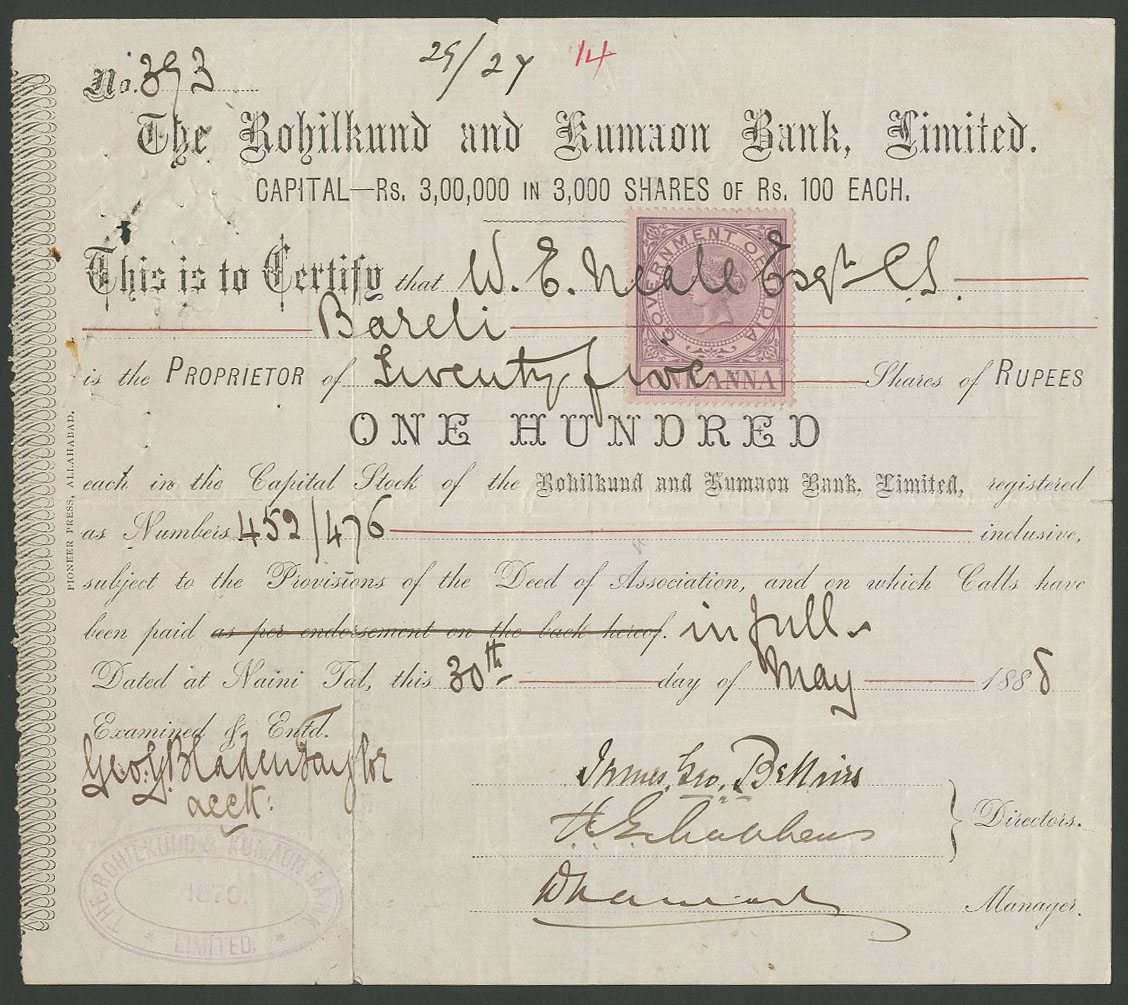 29/27 14
No. 393
The Rohilkund and Kumaon Bank, Limited.
CAPITAL—Rs. 3,00,000 IN 3,000 SHARES OF Rs. 100 EACH.
GOVERNMENT OF INDIA
ONE ANNA
This is to Certify that W. E. Neale Esqr. C.S.
Bareli
is the PROPRIETOR of Twenty five Shares of RUPEES
ONE HUNDRED
each in the Capital Stock of the Rohilkund and Kumaon Bank, Limited, registered
as Numbers 452/476 inclusive,
subject to the Provisions of the Deed of Association, and on which Calls have
been paid as per endorsement on the back hereof. in full.
Dated at Naini Tal, this 30th day of May 1888
Examined & Entd.
Geo. G. Bladen Taylor
acctt:
James Geo.
Directors.
Manager.
THE ROHILKUND & KUMAON BANK
1870.
* LIMITED. *
PIONEER PRESS, ALLAHABAD.